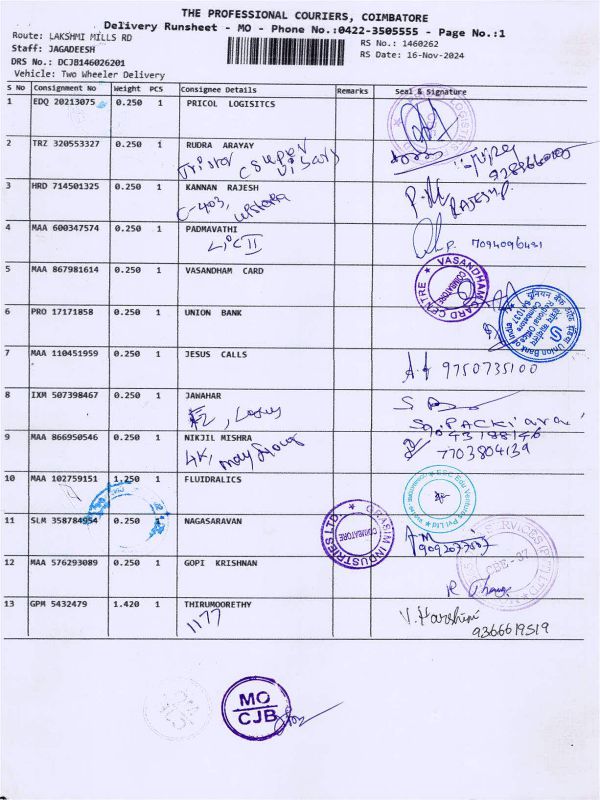 THE PROFESSIONAL COURIERS, COIMBATORE
Delivery Runsheet - MO - Phone No.:0422-3505555 - Page No.:1
Route: LAKSHMI MILLS RD
RS No.: 1460262
Staff: JAGADEESH
RS Date: 16-Nov-2024
DRS No.: DCJB146026201
Vehicle: Two Wheeler Delivery
S No Consignment No Weight PCS Consignee Details Remarks Seal & Signature
1 EDQ 20213075 0.250 1 PRICOL LOGISITCS
2 TRZ 320553327 0.250 1 RUDRA ARAYAY
3 HRD 714501325 0.250 1 KANNAN RAJESH
C-403,
RAJESH.P.
4 MAA 600347574 0.250 1 PADMAVATHI
LIC II
P. 7094096431
5 MAA 867981614 0.250 1 VASANDHAM CARD
VASANDHAM CARD CENTRE
COIMBATORE
6 PRO 17171858 0.250 1 UNION BANK
Union Bank of India
Regional Office
Coimbatore
641037
7 MAA 110451959 0.250 1 JESUS CALLS
9750735100
8 IXM 507398467 0.250 1 JAWAHAR
9 MAA 866950546 0.250 1 NIKJIL MISHRA
7703804139
10 MAA 102759151 1.250 1 FLUIDRALICS
11 SLM 358784954 0.250 1 NAGASARAVAN
GRASIM INDUSTRIES LTD.
COIMBATORE
12 MAA 576293089 0.250 1 GOPI KRISHNAN
CBE - 37
13 GPM 5432479 1.420 1 THIRUMOORETHY
1177
V. Harshini
9366619519
MO
CJB